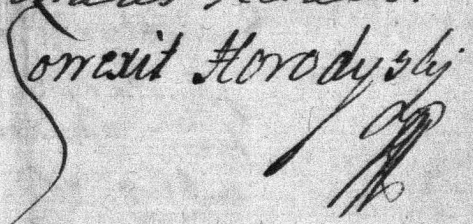 Correxit Horodyski